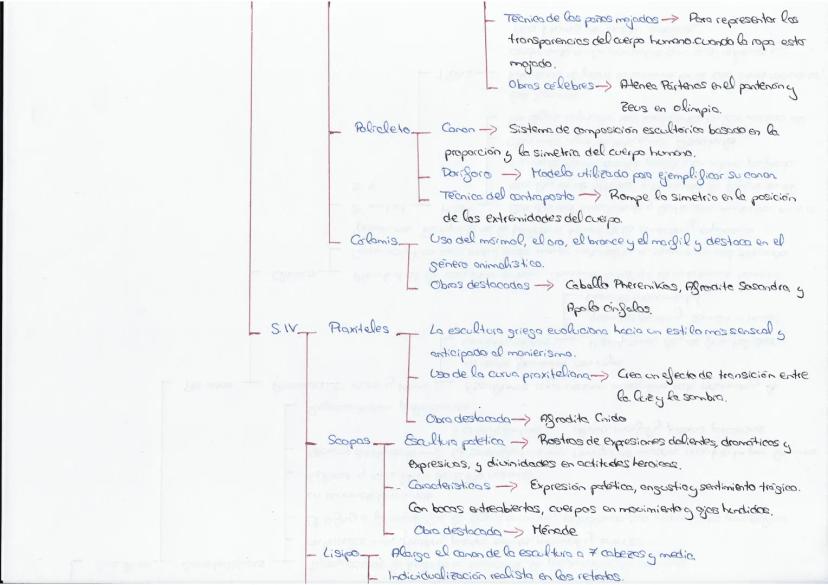 Técnica de los paños mojados → Para representar las
transparencias del cuerpo humano cuando la ropa esta
mojada.
Obras célebres → Atenea Partenos en el partenón y
Zeus en olimpia.
Policleto Canon → Sistema de composición escultórica basado en la
proporción y la simetría del cuerpo humano.
Doríforo → Modelo utilizado para ejemplificar su canon
Técnica del contraposto → Rompe la simetría en la posición
de las extremidades del cuerpo.
Calamis Uso del mármol, el oro, el bronce y el marfil y destaca en el
género animalístico.
Obras destacadas → Caballo Pherenikos, Afrodita Sosandra y
Apolo
S.IV Praxíteles La escultura griega evoluciona hacia un estilo mas sensual y
anticipado al manierismo.
Uso de la curva praxiteliana → Crea un efecto de transición entre
la luz y la sombra.
Obra destacada → Afrodita Cnido
Scopas Escultura patética → Rostros de expresiones dolientes, dramáticos y
expresivos, y divinidades en actitudes heroicas.
Características → Expresión patética, angustia y sentimiento trágico.
Con bocas entreabiertas, cuerpos en movimiento y ojos hundidos.
Obra destacada → Ménade
Lisipo Alarga el canon de la escultura a 7 cabezas y media.
Individualización realista en los retratos.